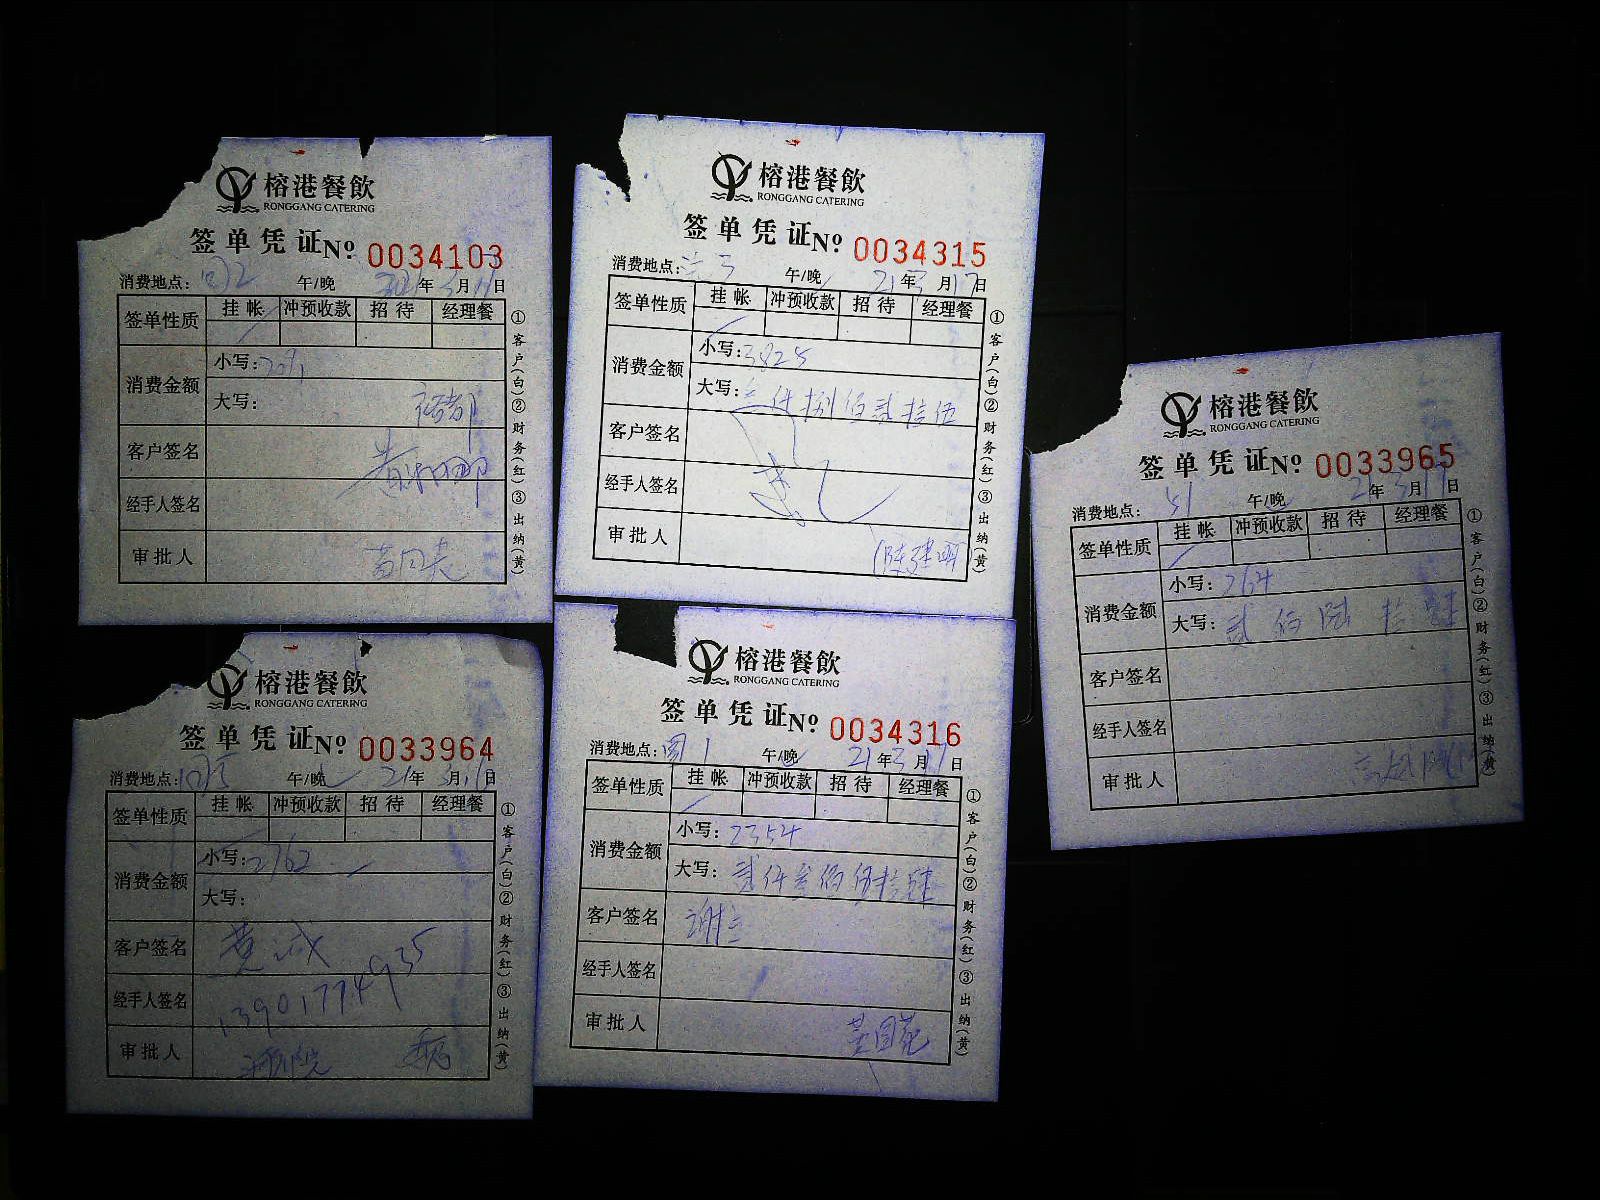 榕港餐飲
RONGGANG CATERING
签单凭证№ 0034103
消费地点: 午/晚 年 月 日
签单性质 挂帐 冲预收款 招待 经理餐
消费金额 小写:
大写:
客户签名
经手人签名
审批人
①客户(白)②财务(红)③出纳(黄)
榕港餐飲
RONGGANG CATERING
签单凭证№ 0034315
消费地点: 午/晚 21年3月17日
签单性质 挂帐 冲预收款 招待 经理餐
消费金额 小写:3825
大写:三仟捌佰贰拾伍
客户签名
经手人签名
审批人 陈建明
①客户(白)②财务(红)③出纳(黄)
榕港餐飲
RONGGANG CATERING
签单凭证№ 0033965
消费地点: 午/晚 21年3月17日
签单性质 挂帐 冲预收款 招待 经理餐
消费金额 小写:264
大写:贰佰陆拾肆
客户签名
经手人签名
审批人
①客户(白)②财务(红)③出纳(黄)
榕港餐飲
RONGGANG CATERING
签单凭证№ 0033964
消费地点: 午/晚 21年3月 日
签单性质 挂帐 冲预收款 招待 经理餐
消费金额 小写:2762
大写:
客户签名 黄诚
经手人签名 13901774935
审批人
①客户(白)②财务(红)③出纳(黄)
榕港餐飲
RONGGANG CATERING
签单凭证№ 0034316
消费地点: 午/晚 21年3月17日
签单性质 挂帐 冲预收款 招待 经理餐
消费金额 小写:2354
大写:贰仟叁佰伍拾肆
客户签名
经手人签名
审批人
①客户(白)②财务(红)③出纳(黄)